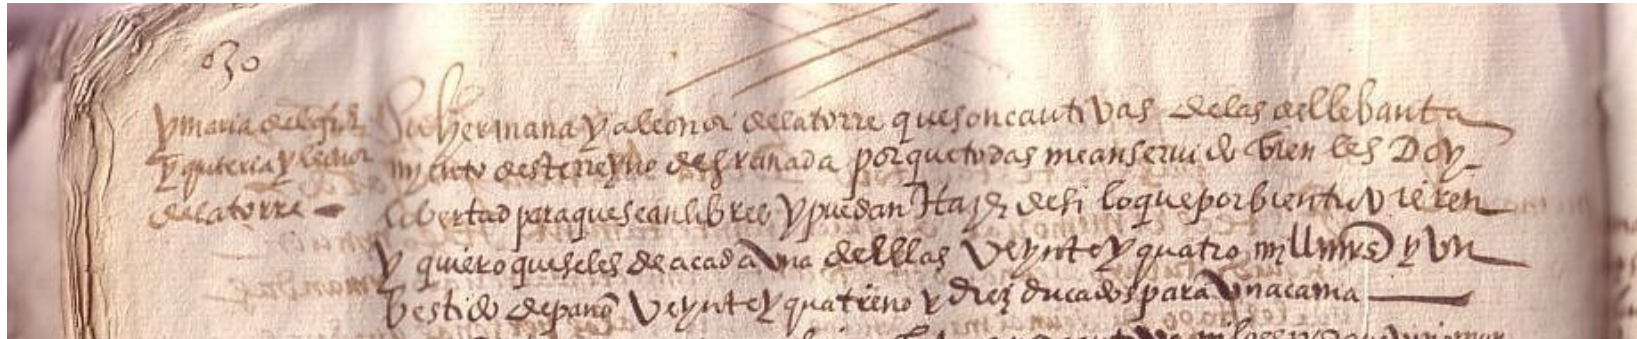 y maria
y quiteria y leonor
de la torre
su hermana y a leonor de la torre que son cautivas de las del lebanta
myento deste reyno de granada por que todas me an servido bien les Doy
libertad para que sean libres y puedan Hazer de si lo que por bien tuvieren
y quiero que se les de a cada una dellas veynte y quatro mill mrs y un
bestido de paño veynte y quatreno y diez ducados para una cama